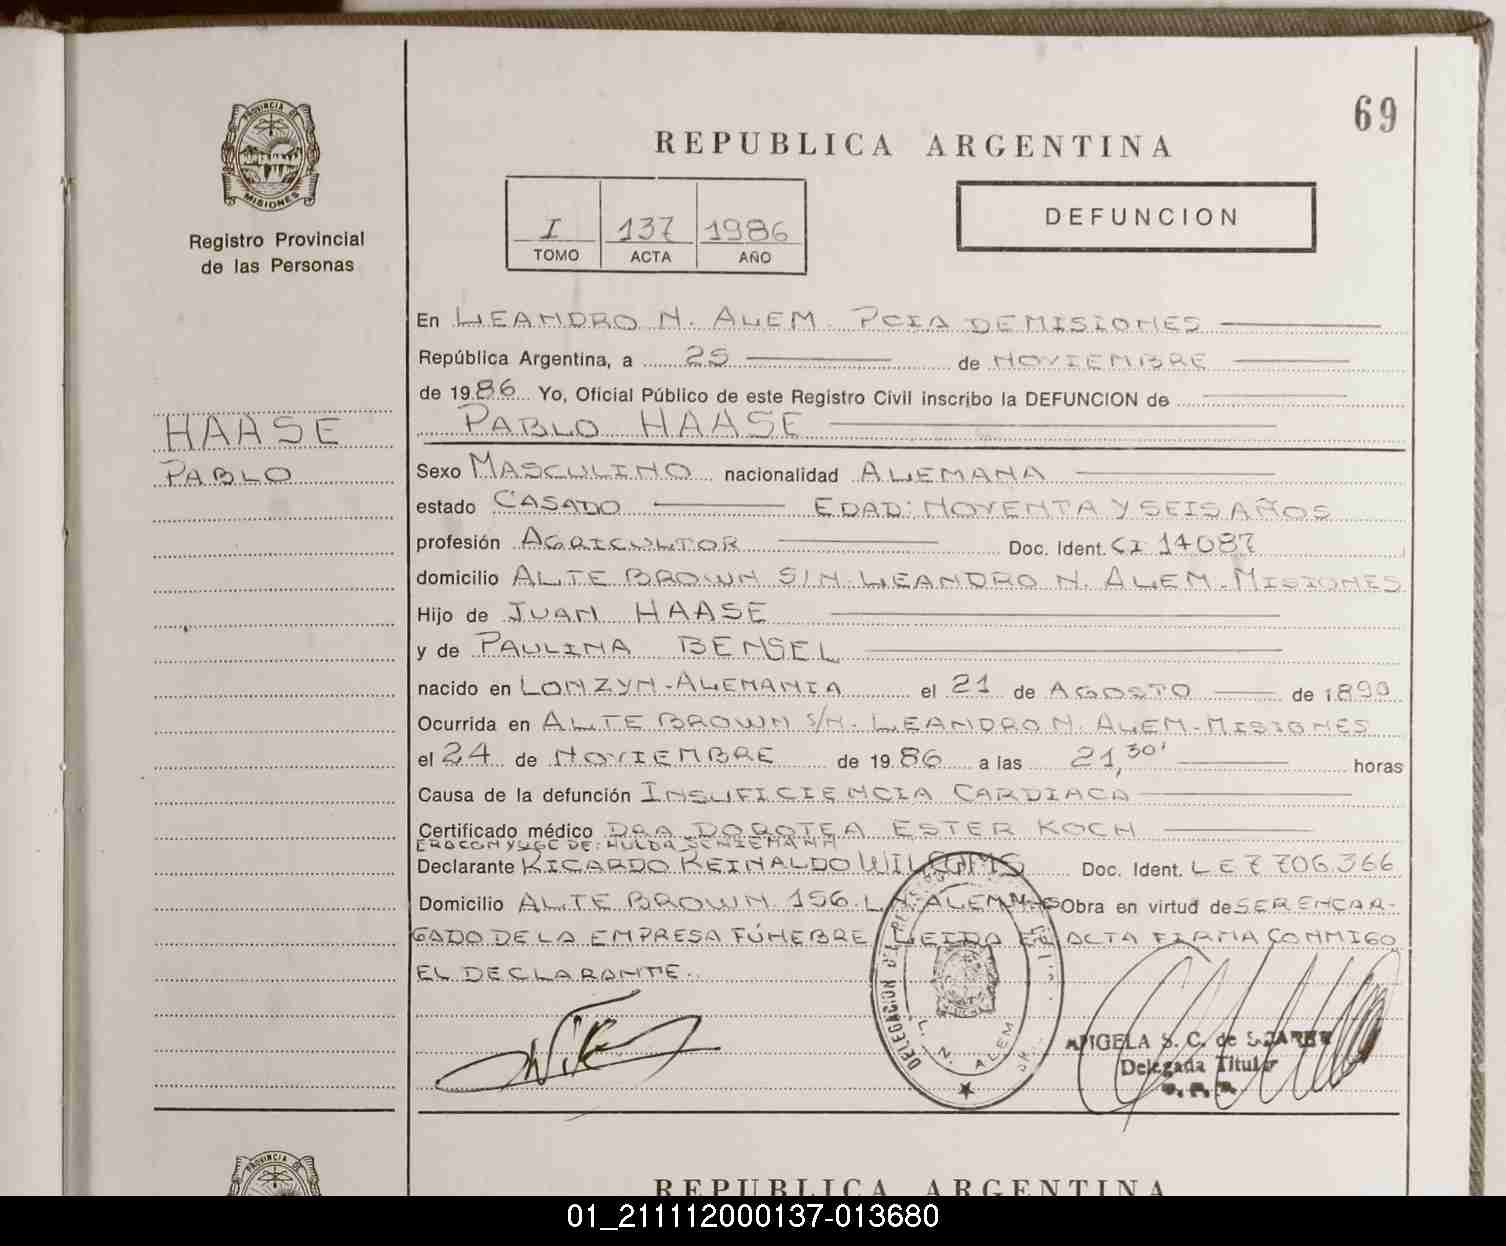 69
PROVINCIA DE
MISIONES
Registro Provincial
de las Personas
HAASE
PABLO
REPUBLICA ARGENTINA
I 137 1986
TOMO ACTA AÑO
DEFUNCION
En LEANDRO N. ALEM. PCIA DE MISIONES
República Argentina, a 25 de NOVIEMBRE
de 1986 Yo, Oficial Público de este Registro Civil inscribo la DEFUNCION de
PABLO HAASE
Sexo MASCULINO nacionalidad ALEMANA
estado CASADO EDAD: NOVENTA Y SEIS AÑOS
profesión AGRICULTOR Doc. Ident. CI 14087
domicilio ALTE BROWN S/N. LEANDRO N. ALEM. MISIONES
Hijo de JUAN HAASE
y de PAULINA BENSEL
nacido en LONZYN-ALEMANIA el 21 de AGOSTO de 1890
Ocurrida en ALTE BROWN S/N. LEANDRO N. ALEM-MISIONES
el 24 de NOVIEMBRE de 1986 a las 21,30' horas
Causa de la defunción INSUFICIENCIA CARDIACA
Certificado médico DRA. DOROTEA ESTER KOCH
ERA CONYUGE DE: HULDA
Declarante RICARDO REINALDO Doc. Ident. LE 7 706.366
Domicilio ALTE BROWN. 156. L.N. ALEM Obra en virtud de SER ENCAR-
GADO DE LA EMPRESA FÚNEBRE. LEIDA EL ACTA FIRMA CONMIGO
EL DECLARANTE.
DELEGACION DEL
L. N. ALEM
ANGELA S. C. de SUAREZ
Delegada Titular
PROVINCIA DE
REPUBLICA ARGENTINA
01_211112000137-013680